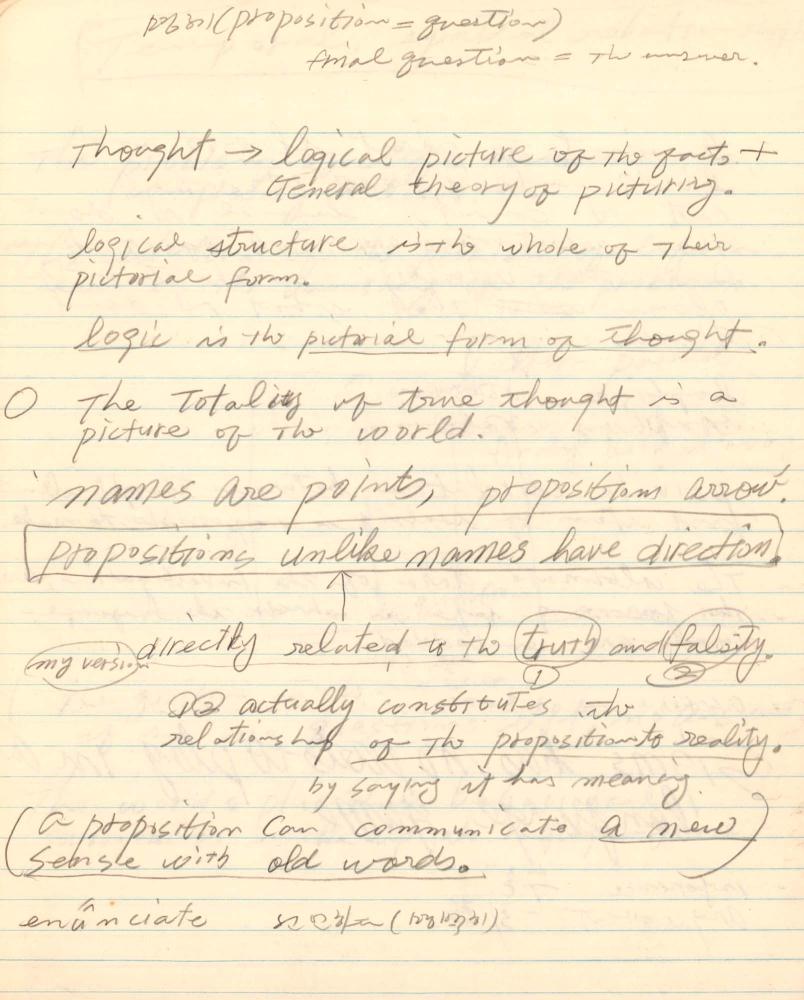 (proposition = question)
final question = the answer.
Thought → logical picture of the facts +
General theory of picturing.
logical structure is the whole of their
pictorial form.
logic is the pictorial form of thought.
O The Totality of true thought is a
picture of the world.
names are points, propositions arrow.
propositions unlike names have direction.
↑
my version directly related to the truth and falsity.
① ②
①② actually constitutes the
relationship of the proposition to reality.
by saying it has meaning.
(a proposition can communicate a new
sense with old words.)
enunciate